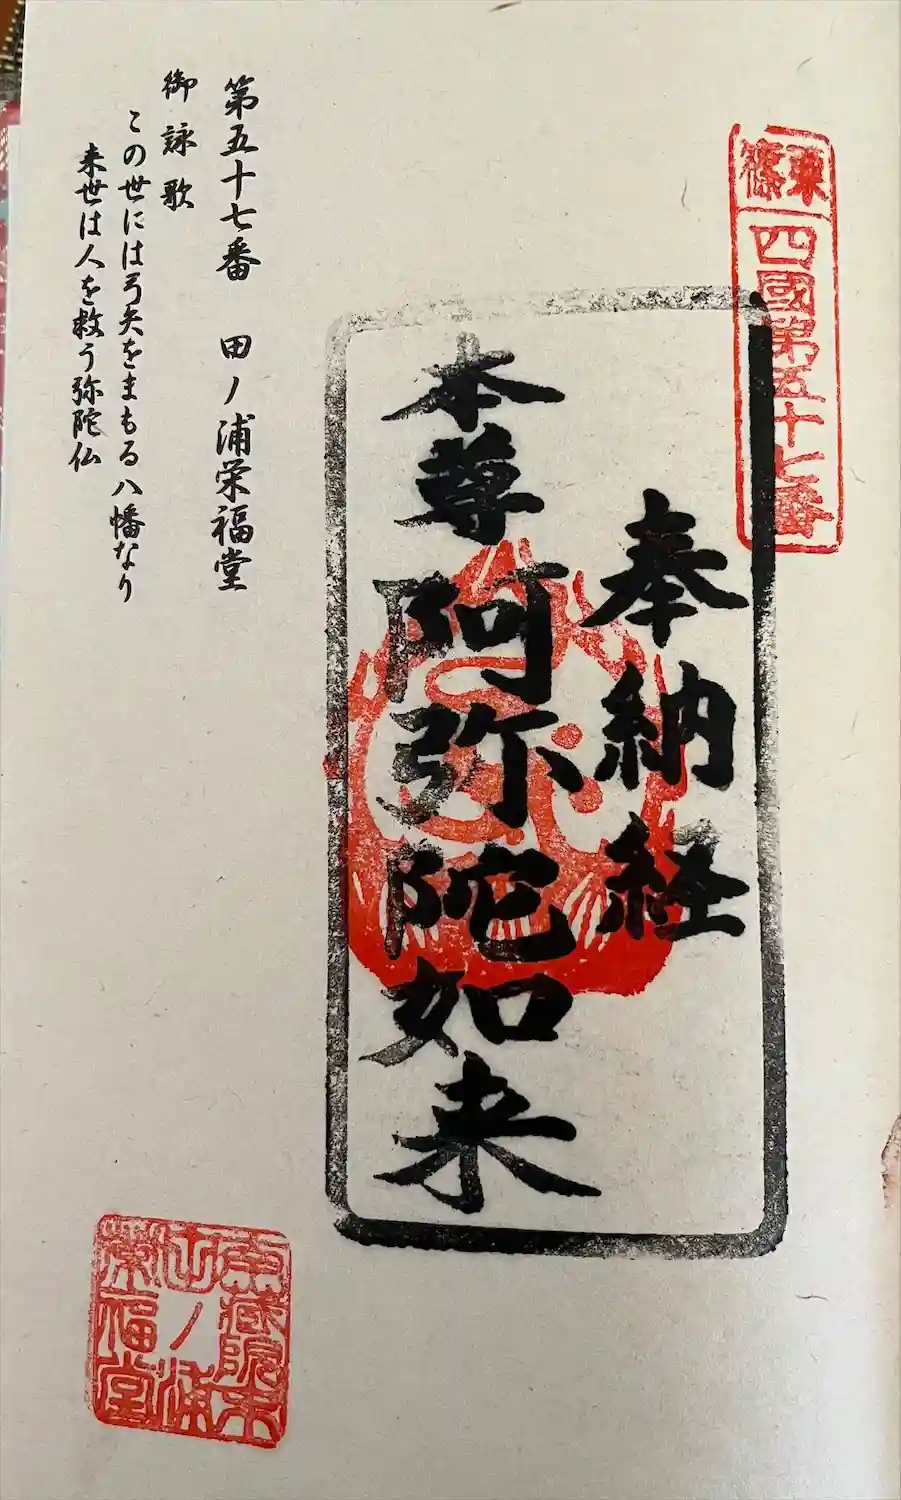 東
篠
四國第五十七番
奉納経
本尊阿弥陀如来
第五十七番 田ノ浦栄福堂
御詠歌
この世には弓矢をまもる八幡なり
来世は人を救う弥陀仏
蔵院末
田ノ浦
栄福堂